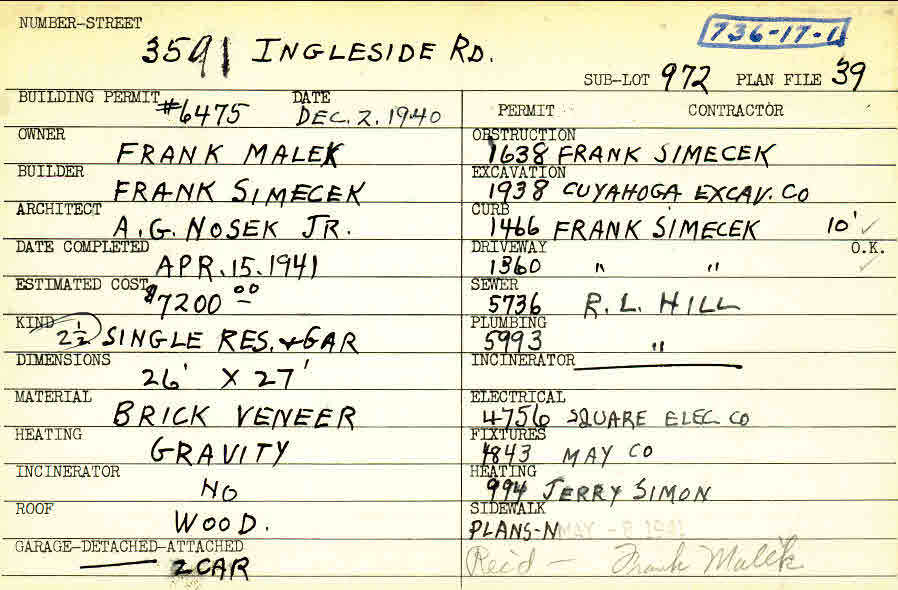 NUMBER-STREET
3591 INGLESIDE RD.
736-17-1
SUB-LOT 972 PLAN FILE 39
BUILDING PERMIT #6475 DATE DEC. 2. 1940
OWNER
FRANK MALEK
BUILDER
FRANK SIMECEK
ARCHITECT
A. G. NOSEK JR.
DATE COMPLETED
APR. 15. 1941
ESTIMATED COST
$7200 00
KIND
2 1/2 SINGLE RES. & GAR
DIMENSIONS
26' X 27'
MATERIAL
BRICK VENEER
HEATING
GRAVITY
INCINERATOR
NO
ROOF
WOOD.
GARAGE-DETACHED-ATTACHED
2 CAR
PERMIT CONTRACTOR
OBSTRUCTION
1638 FRANK SIMECEK
EXCAVATION
1938 CUYAHOGA EXCAV. CO
CURB
1466 FRANK SIMECEK 10' ✓
DRIVEWAY O.K.
1360 " " ✓
SEWER
5736 R. L. HILL
PLUMBING
5993 "
INCINERATOR
ELECTRICAL
4756 SQUARE ELEC. CO
FIXTURES
4843 MAY CO
HEATING
994 JERRY SIMON
SIDEWALK
PLANS-N MAY -8 1941
Rec'd - Frank Malek